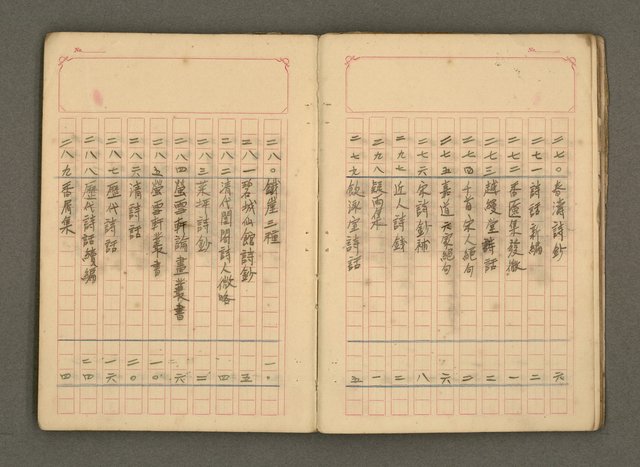 No.
二七〇 春濤詩鈔 六
二七一 詩話新編 二
二七二 香匳集發微 一
二七三 越縵堂詩話 二
二七四 千首宋人絕句 二
二七五 嘉道六家絕句 六
二七六 宋詩鈔補 八
二九七 近人詩錄 二
二九八 疑雨集 一
二七九 飲冰室詩話 五
No.
二八〇 鐵崖三種 一〇
二八一 碧城仙館詩鈔 五
二八二 清代閨閣詩人徵略 四
二八三 茶坪詩鈔 二
二八四 螢雪軒論畫叢書 六
二八五 螢雪軒叢書 一〇
二八六 清詩話 二〇
二八七 歷代詩話 一六
二八八 歷代詩話續編 二四
二八九 香屑集 四